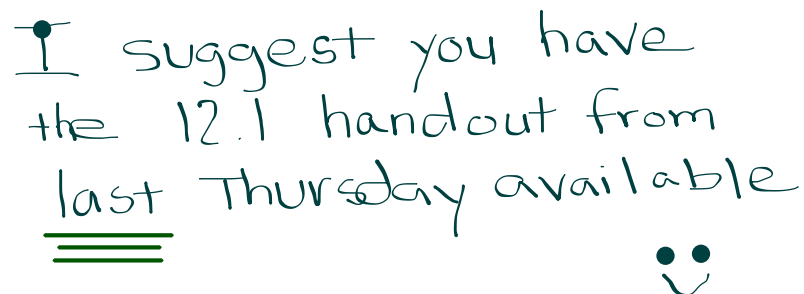 I suggest you have
the 12.1 handout from
last Thursday available